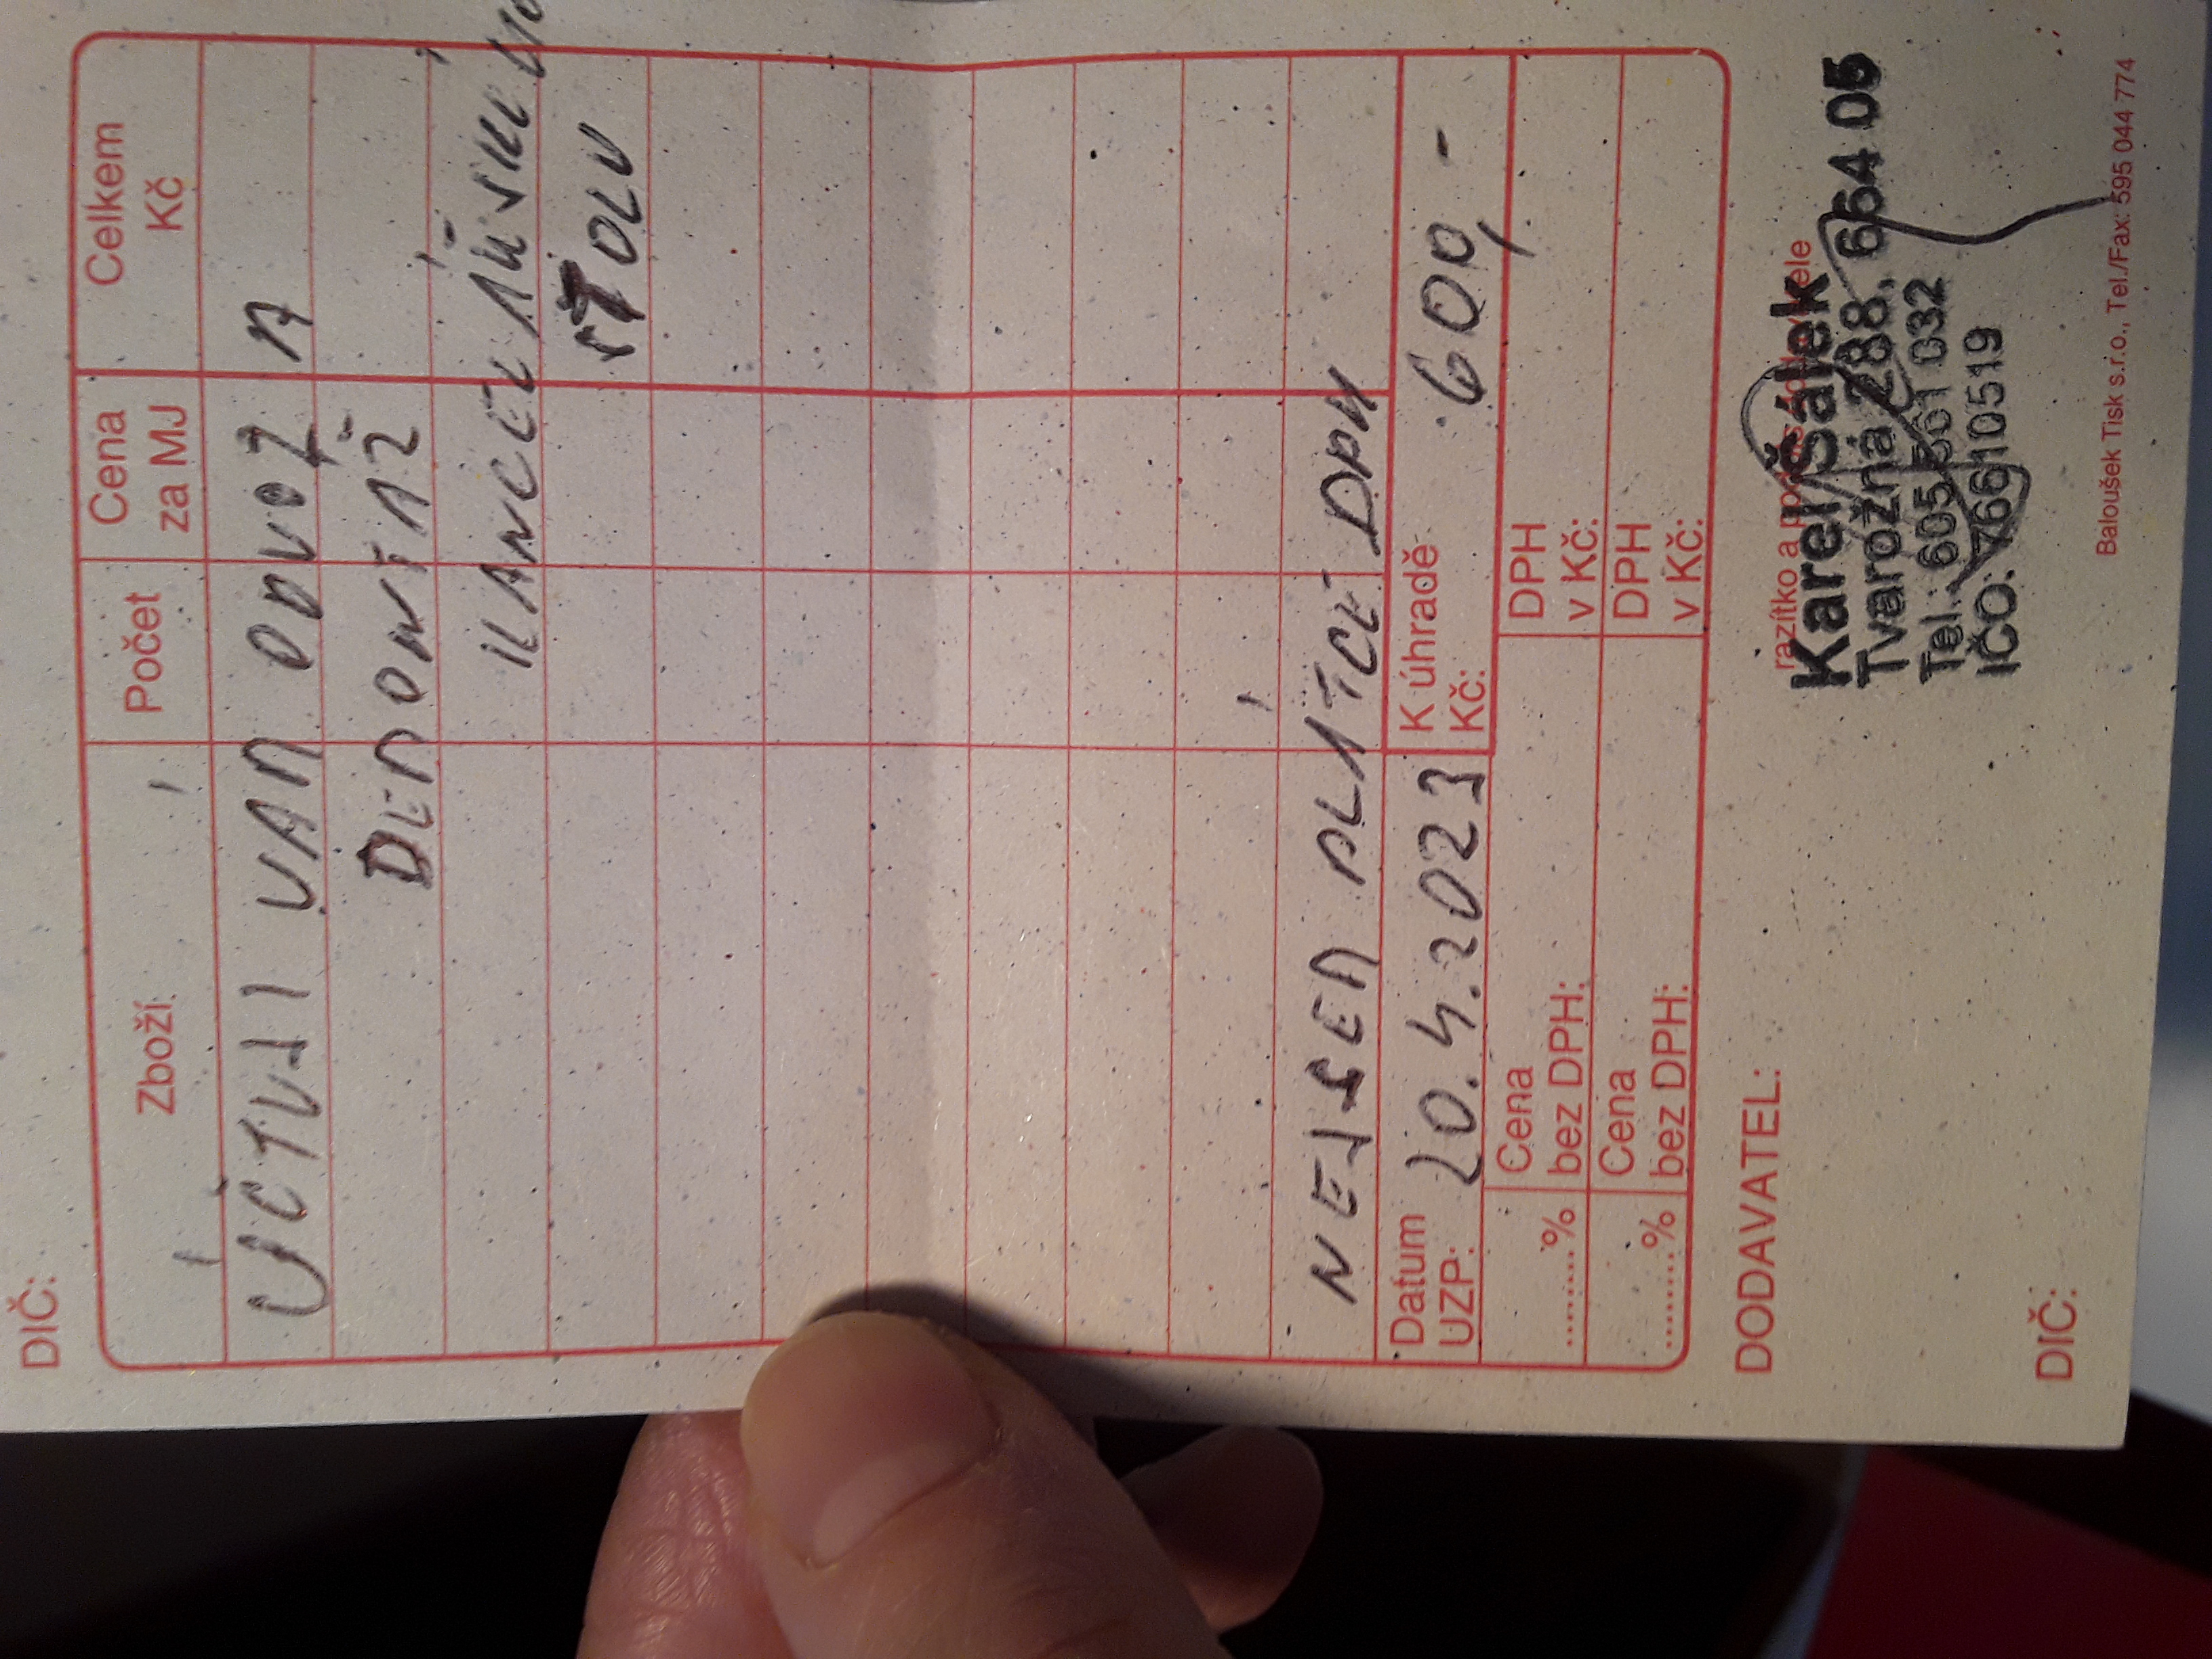 DIČ:
Zboží: Počet Cena za MJ Celkem Kč
ÚČTUJI VÁM ODVOZ A
DEMONTÁŽ
KANCELÁŘSKÉHO
STOLU
NEJSEM PLÁTCE DPH
Datum UZP: 20.4.2023 K úhradě Kč: 600,-
........% Cena bez DPH: DPH v Kč:
........% Cena bez DPH: DPH v Kč:
DODAVATEL:
razítko a
Karel Šálek
Tvarožná 288, 664 05
Tel.: 605 561 032
IČO: 766105519
DIČ:
Baloušek Tisk s.r.o., Tel./Fax: 595 044 774